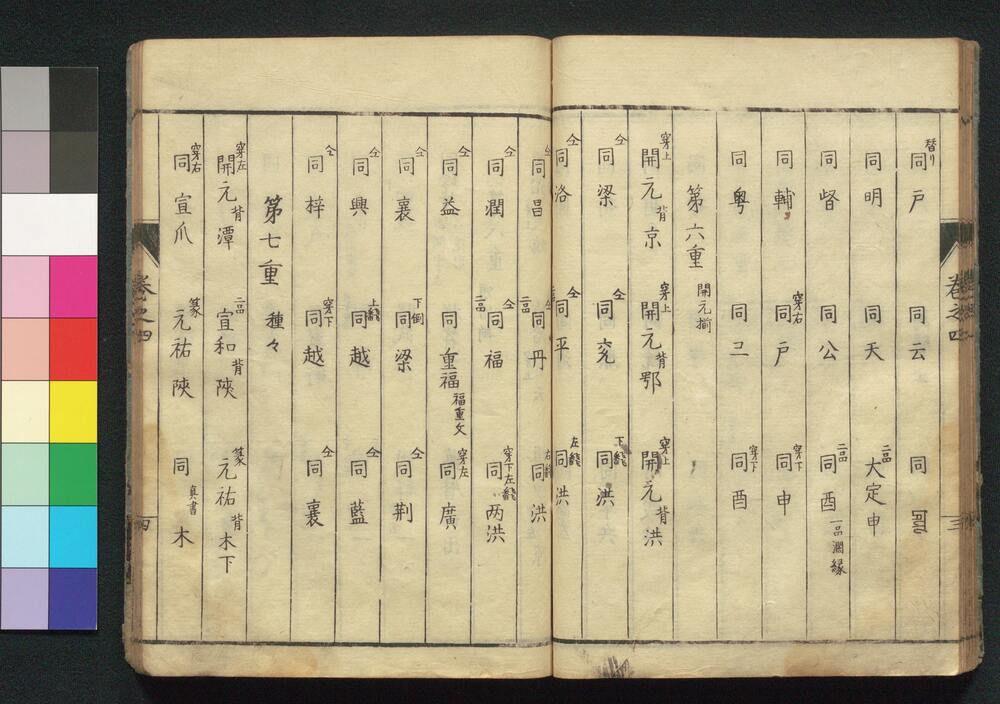 替り同戸 同云 同
同明 同天 二品大定申
同督 同公 二品同酉一品濶縁
同輔 穿右同戸 穿下同申
同粤 同二 穿下同酉
第六重 開元揃
穿上開元背京 穿上開元背鄂 穿上開元背洪
仝同梁 仝同兗 下縦同洪
仝同洛 仝同平 左縦同洪
仝同昌 二品仝同丹 右縦同洪
仝同潤 二品仝同福 穿下左縦同両洪
仝同益 同重福福重文 穿左同廣
仝同襄 下倒同梁 仝同荆
仝同興 上縦同越 仝同藍
仝同梓 穿下同越 仝同襄
第七重 種々
穿左開元背潭 二品宣和背陝 篆元祐背木下
穿右同宣爪 篆元祐陝 同真書木
巻之四 三
巻之四 四